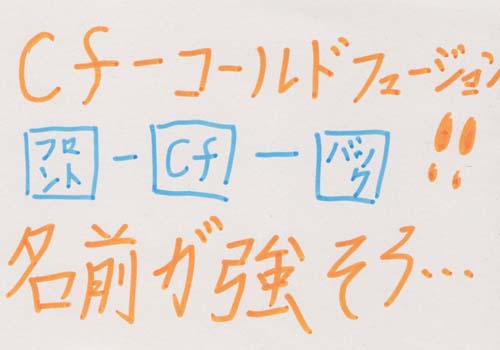 Cf-コールドフュージョン!!
フロント-Cf-バック
名前が強そう...